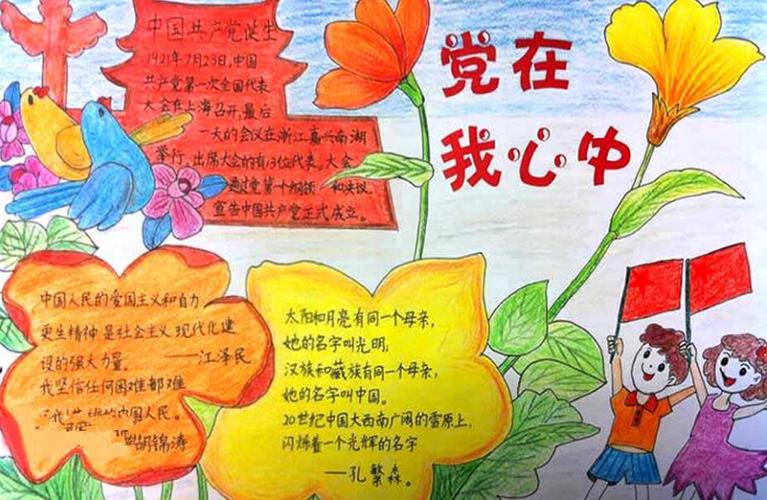 中国共产党诞生
1921年7月23日,中国
共产党第一次全国代表
大会在上海召开,最后
一天的会议在浙江嘉兴南湖
举行。出席大会的有13位代表。大会
通过党第十纲领 和决议,
宣告中国共产党正式成立。
党在
我心中
中国人民的爱国主义和自力
更生精神是社会主义现代化建
设的强大力量。 ——江泽民
我坚信任何困难都难
的中国人民。
胡锦涛
太阳和月亮有同一个母亲,
她的名字叫光明,
汉族和藏族有同一个母亲,
她的名字叫中国。
20世纪中国大西南广阔的雪原上,
闪烁着一个光辉的名字
——孔繁森。